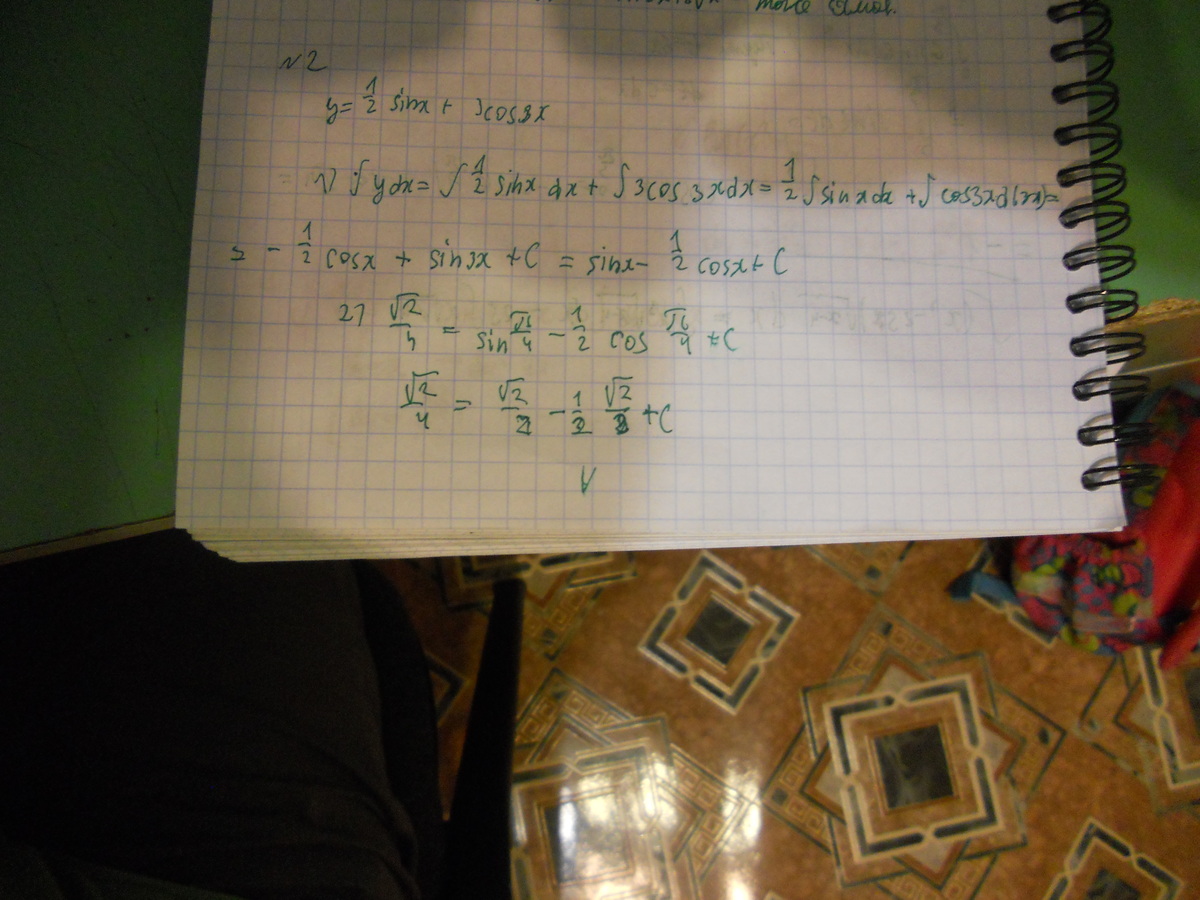 тоже самое.
№2
y= 1/2 sinx + 3cos3x
1) ∫ydx= ∫ 1/2 sinx dx + ∫3cos 3xdx= 1/2 ∫sin xdx + ∫ cos3xd(3x)=
= - 1/2 cosx + sin3x +C = sinx- 1/2 cosx+C
2) √2/4 = sin π/4 - 1/2 cos π/4 +C
√2/4 = √2/2 - 1/2 √2/2 +C